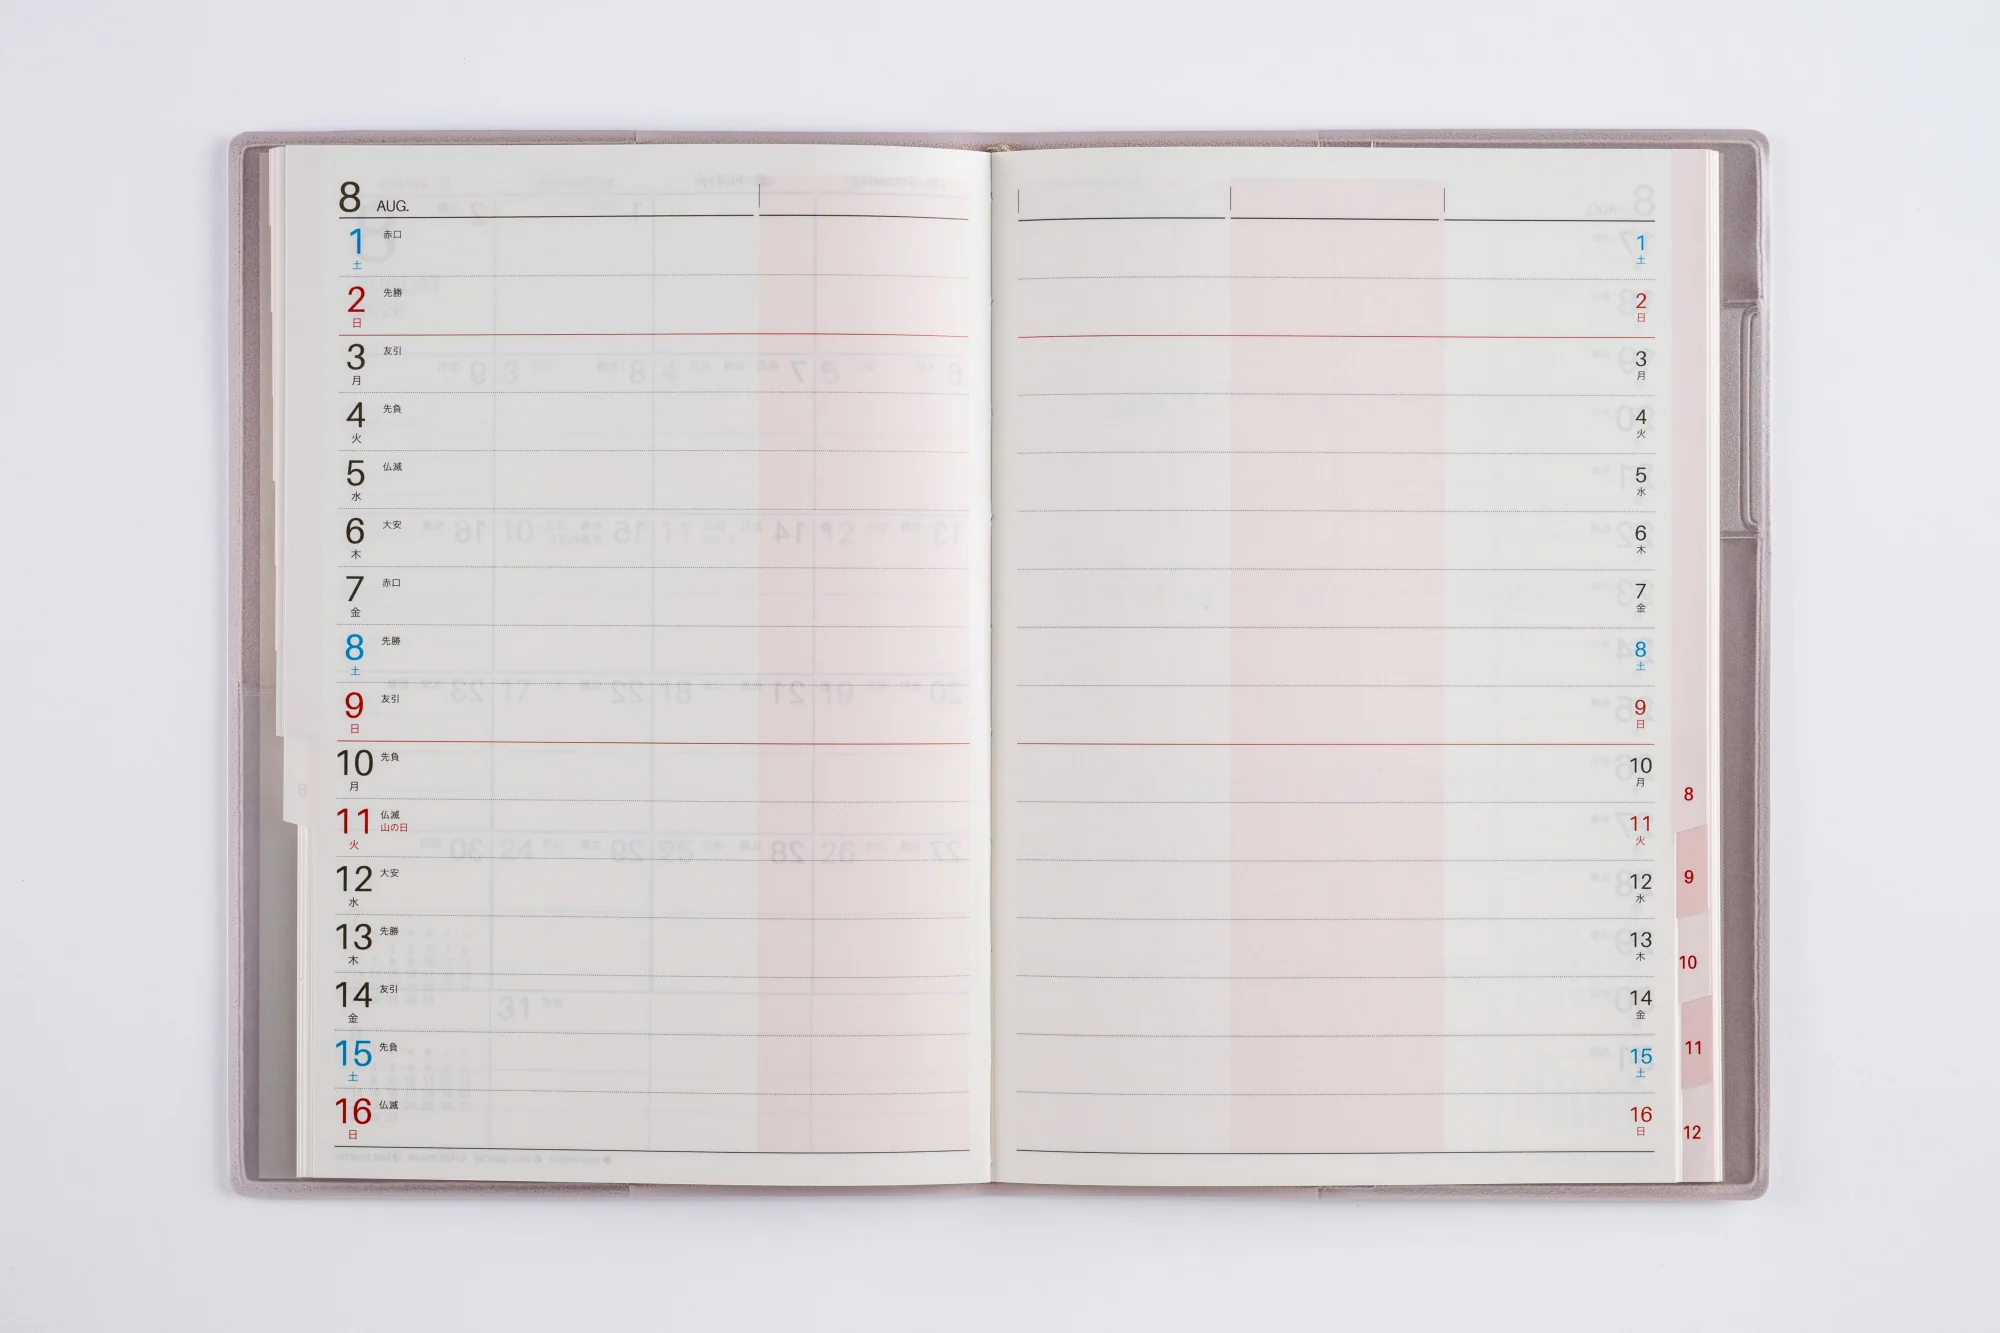 8 AUG.
1 赤口
土
2 先勝
日
3 友引
月
4 先負
火
5 仏滅
水
6 大安
木
7 赤口
金
8 先勝
土
9 友引
日
10 先負
月
11 仏滅
山の日
火
12 大安
水
13 先勝
木
14 友引
金
15 先負
土
16 仏滅
日
1
土
2
日
3
月
4
火
5
水
6
木
7
金
8
土
9
日
10
月
11
火
12
水
13
木
14
金
15
土
16
日
8
9
10
11
12